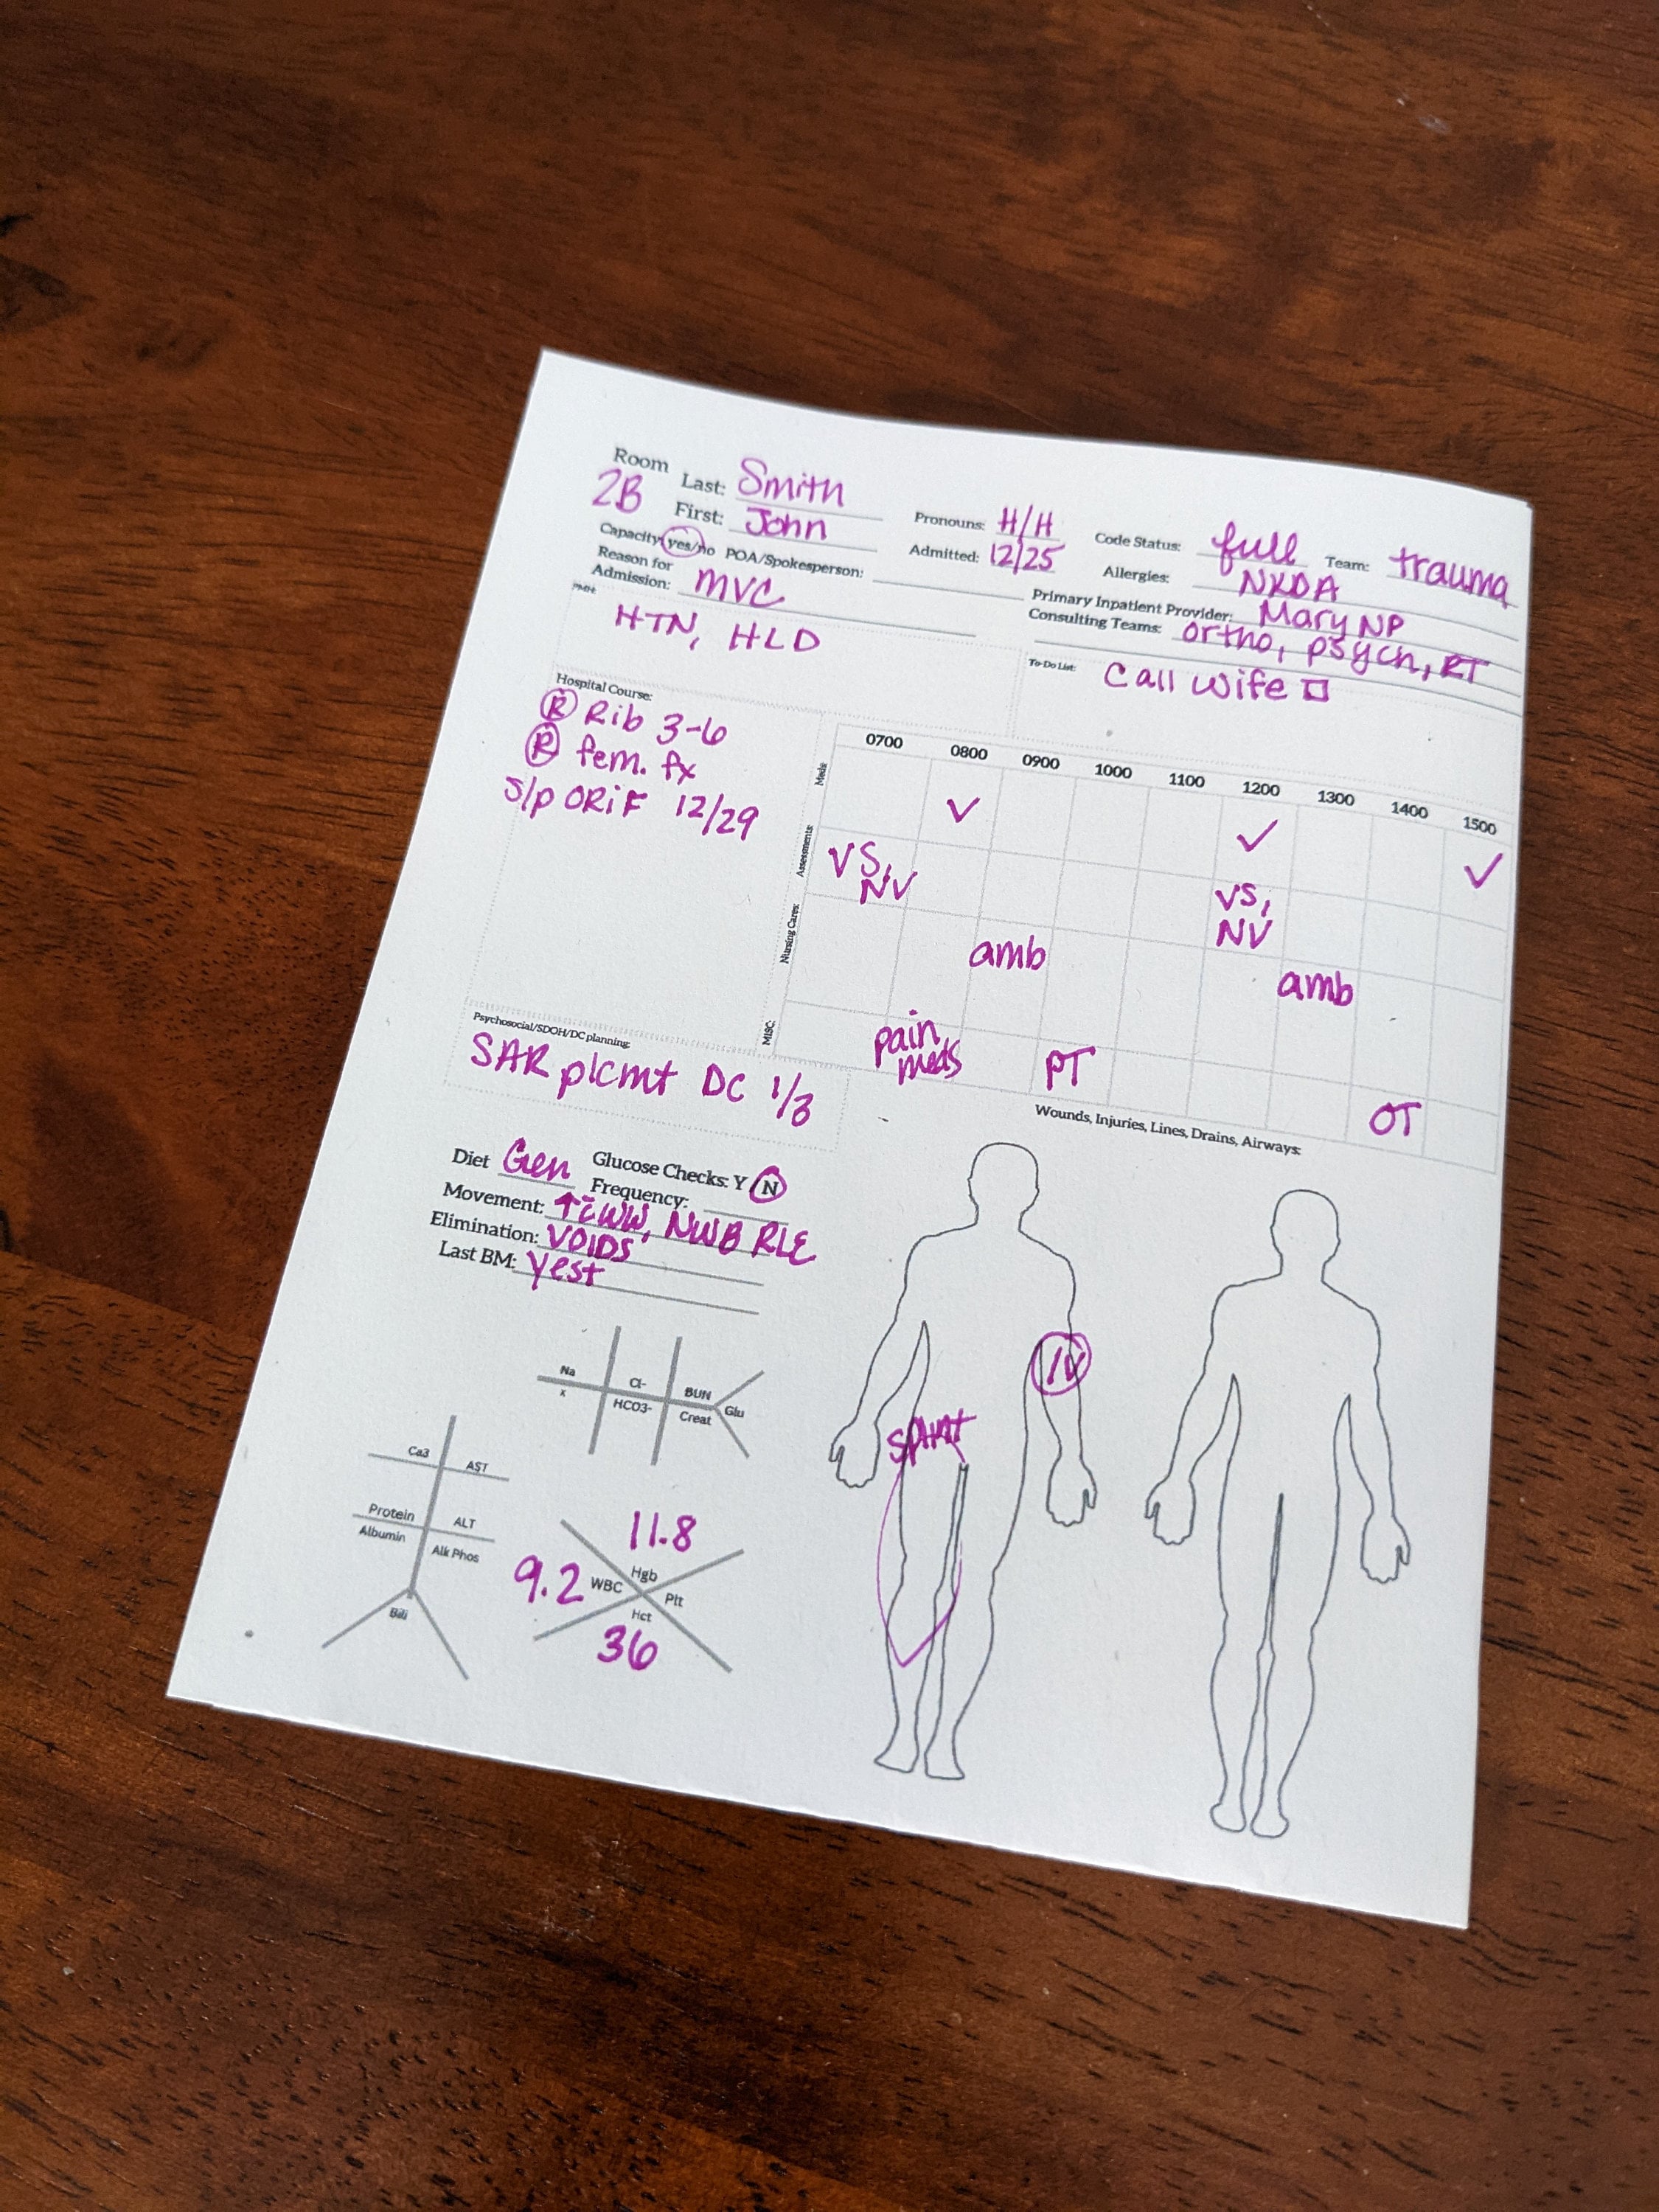 Room
2B
Last: Smith
First: John
Pronouns: H/H
Admitted: 12/25
Code Status: full
Team: trauma
Allergies: NKDA
Capacity: yes/no POA/Spokesperson:
Reason for
Admission: MVC
Primary Inpatient Provider: Mary NP
Consulting Teams: ortho, psych, RT
HTN, HLD
To-Do List: Call wife
Hospital Course:
R Rib 3-6
R fem. fx
S/p ORiF 12/29
0700 0800 0900 1000 1100 1200 1300 1400 1500
Meds: ✓ ✓ ✓
Assessments: VS, NV VS, NV
Nursing Cares: amb amb
MISC: pain meds PT OT
Psychosocial/SDOH/DC planning:
SAR plcmt DC 1/3
Diet Gen Glucose Checks: Y N
Frequency:
Movement: ↑ c̄ WW, NWB RLE
Elimination: VOIDS
Last BM: yest
Wounds, Injuries, Lines, Drains, Airways:
IV
splint
Na Cl- BUN
K HCO3- Creat Glu
Ca3 AST
Protein ALT
Albumin Alk Phos
Bili
11.8
Hgb
9.2 WBC Plt
Hct
36